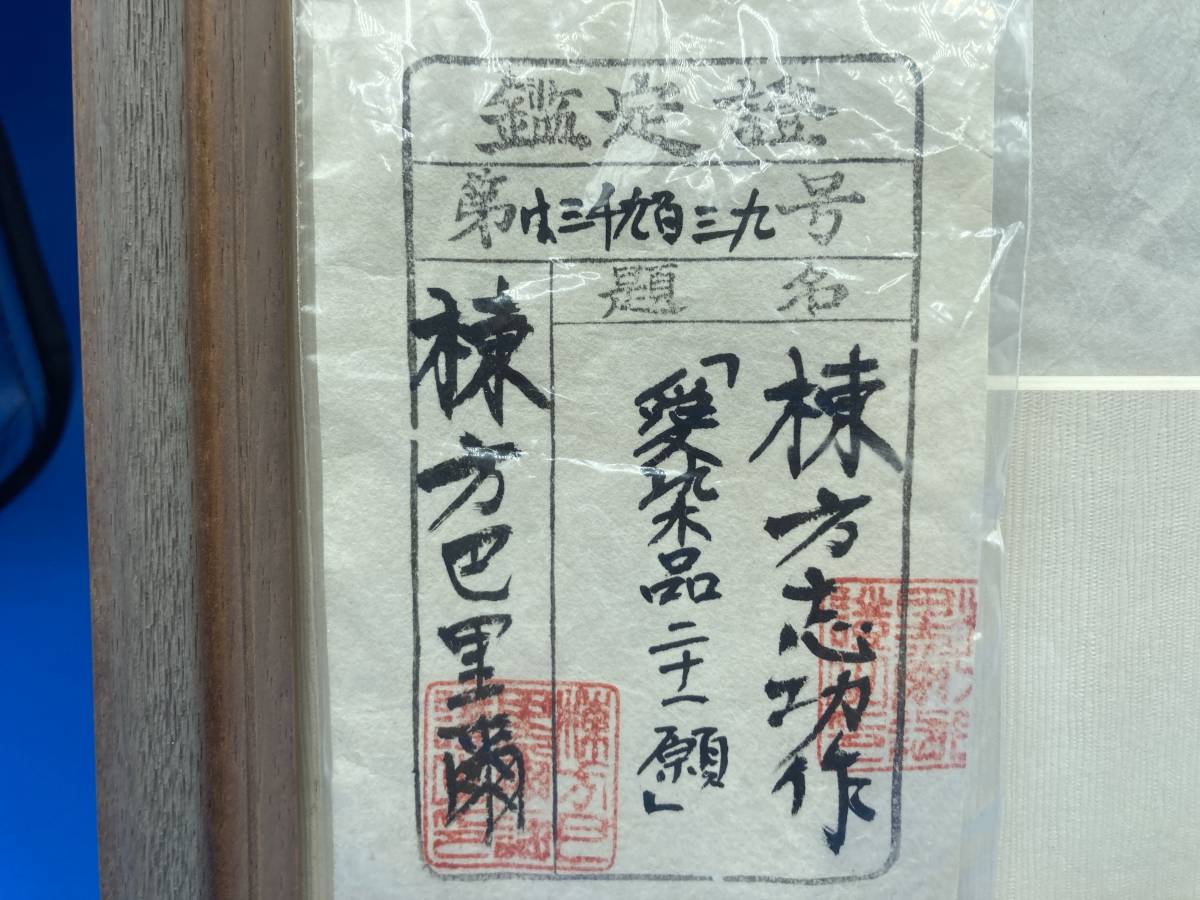 鑑定證
第は三千九百三九号
題名
棟方志功作
「愛染品二十一願」
棟方巴里爾